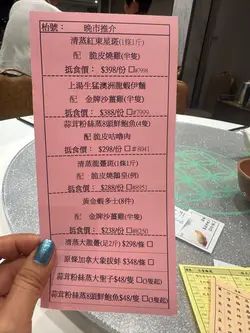 枱號：
晚市推介
清蒸紅東星斑(1條1斤)
配 脆皮燒雞(半隻)
抵食價： $398/份 □#7998
上湯生猛澳洲龍蝦伊麵
配 金牌沙薑雞(半隻)
抵食價： $388/份 □#7999
蒜茸粉絲蒸8頭鮮鮑魚(4隻)
配 脆皮咕嚕肉
抵食價： $298/份 □
清蒸龍躉斑(1條1斤)
配 脆皮燒鵝皇(例)
抵食價： $288/份 □#8951
黃金蝦多士(8件)
配 金牌沙薑雞(半隻)
抵食價： $238/份 □#8250
清蒸大龍躉(足2斤) $298/條 □
原條加拿大象拔蚌 $348/條 □
蒜茸粉絲蒸大聖子$48/隻 □(2隻起)
蒜茸粉絲蒸8頭鮮鮑魚$48/隻 □(3隻起)